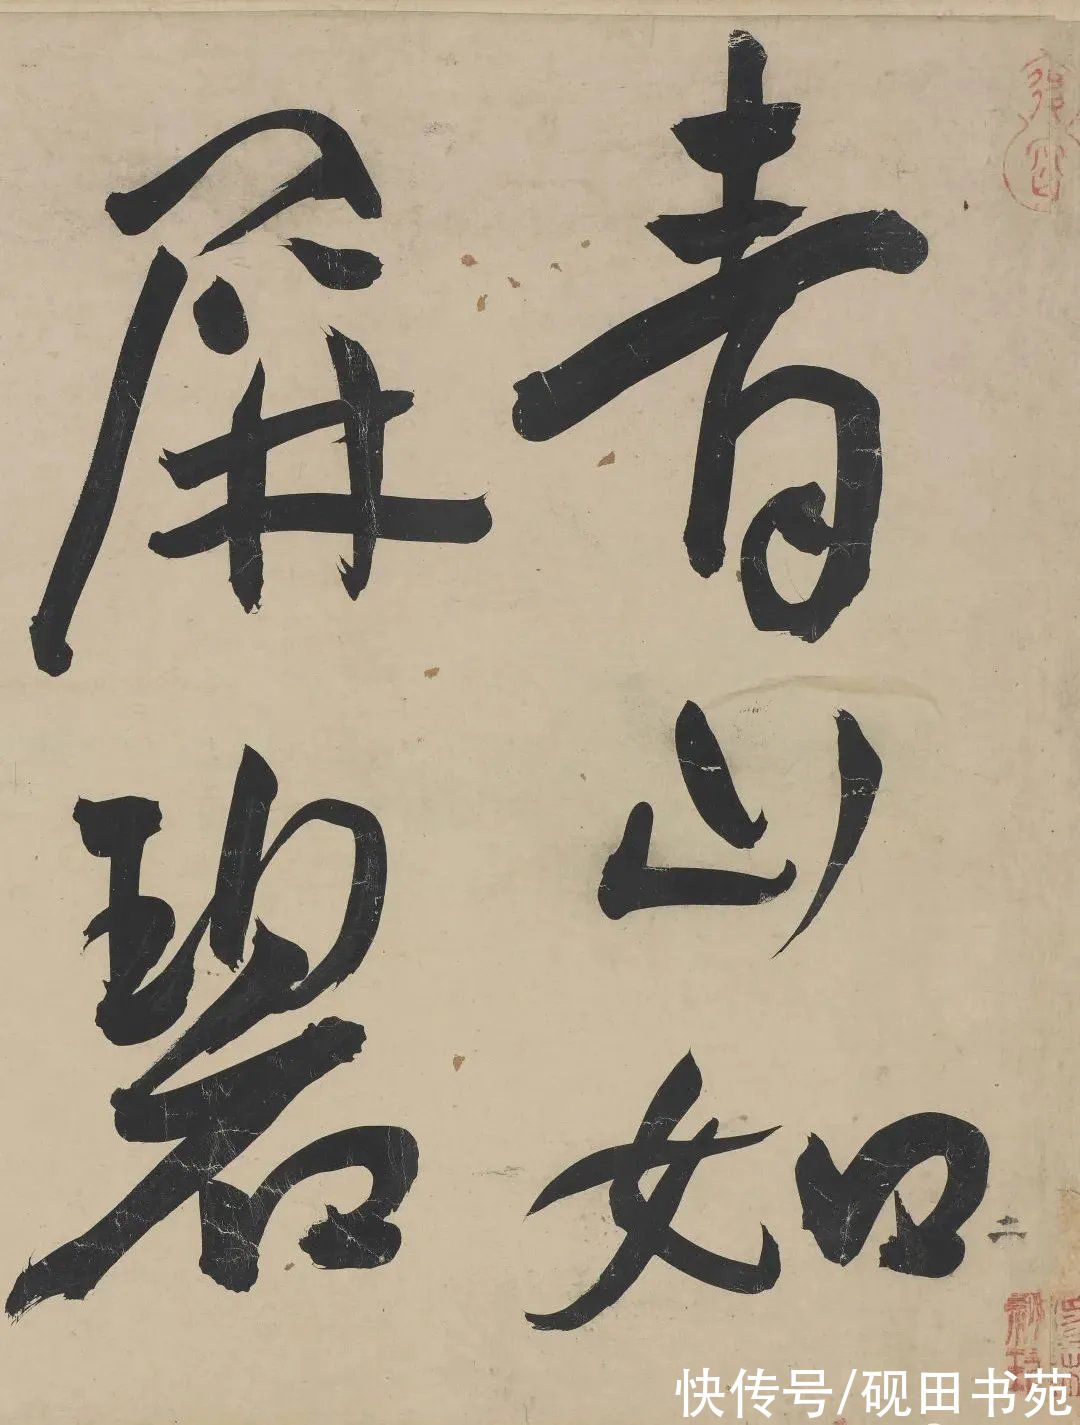 青山如
屏碧
二
快传号/砚田书苑